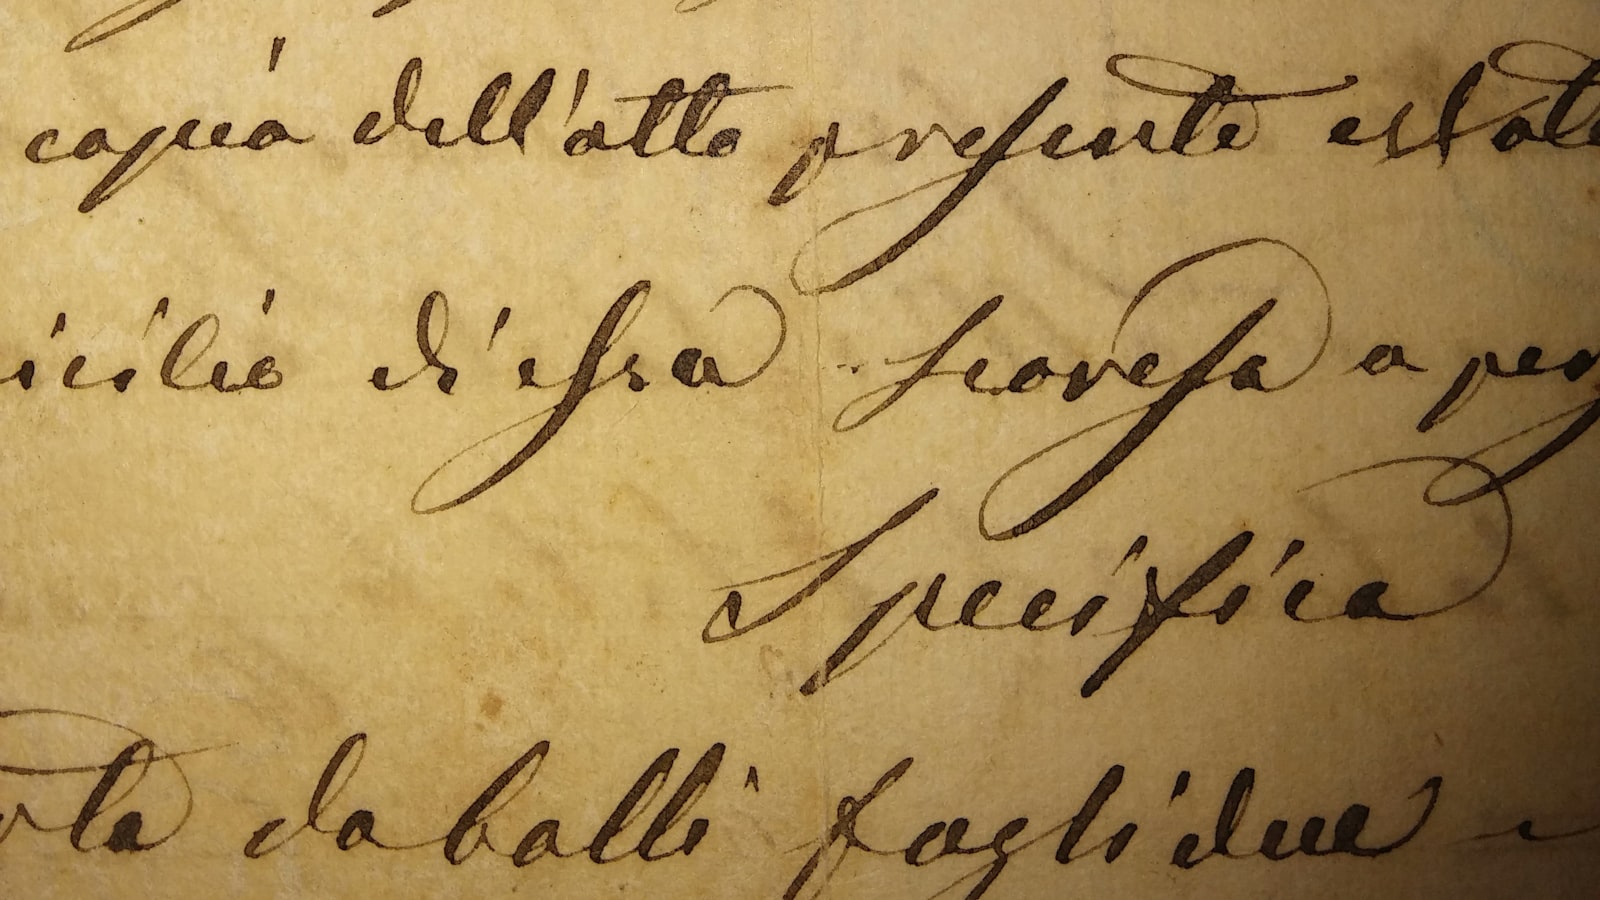 copia dell'atto presente è stat
icilio di essa Scoresa a per
Specifica
rta da bolli fogli due